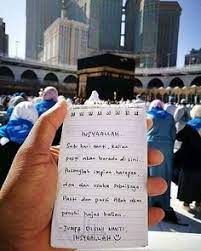 INSYAALLAH..
Satu hari nanti, kalian
pasti akan berada di sini.
Pasanglah impian, harapan,
doa dan usaha sebaiknya.
Pasti dan pasti Allah akan
penuhi hajat kalian..
JUMPA DISINI NANTI.
INSYAALLAH ☺